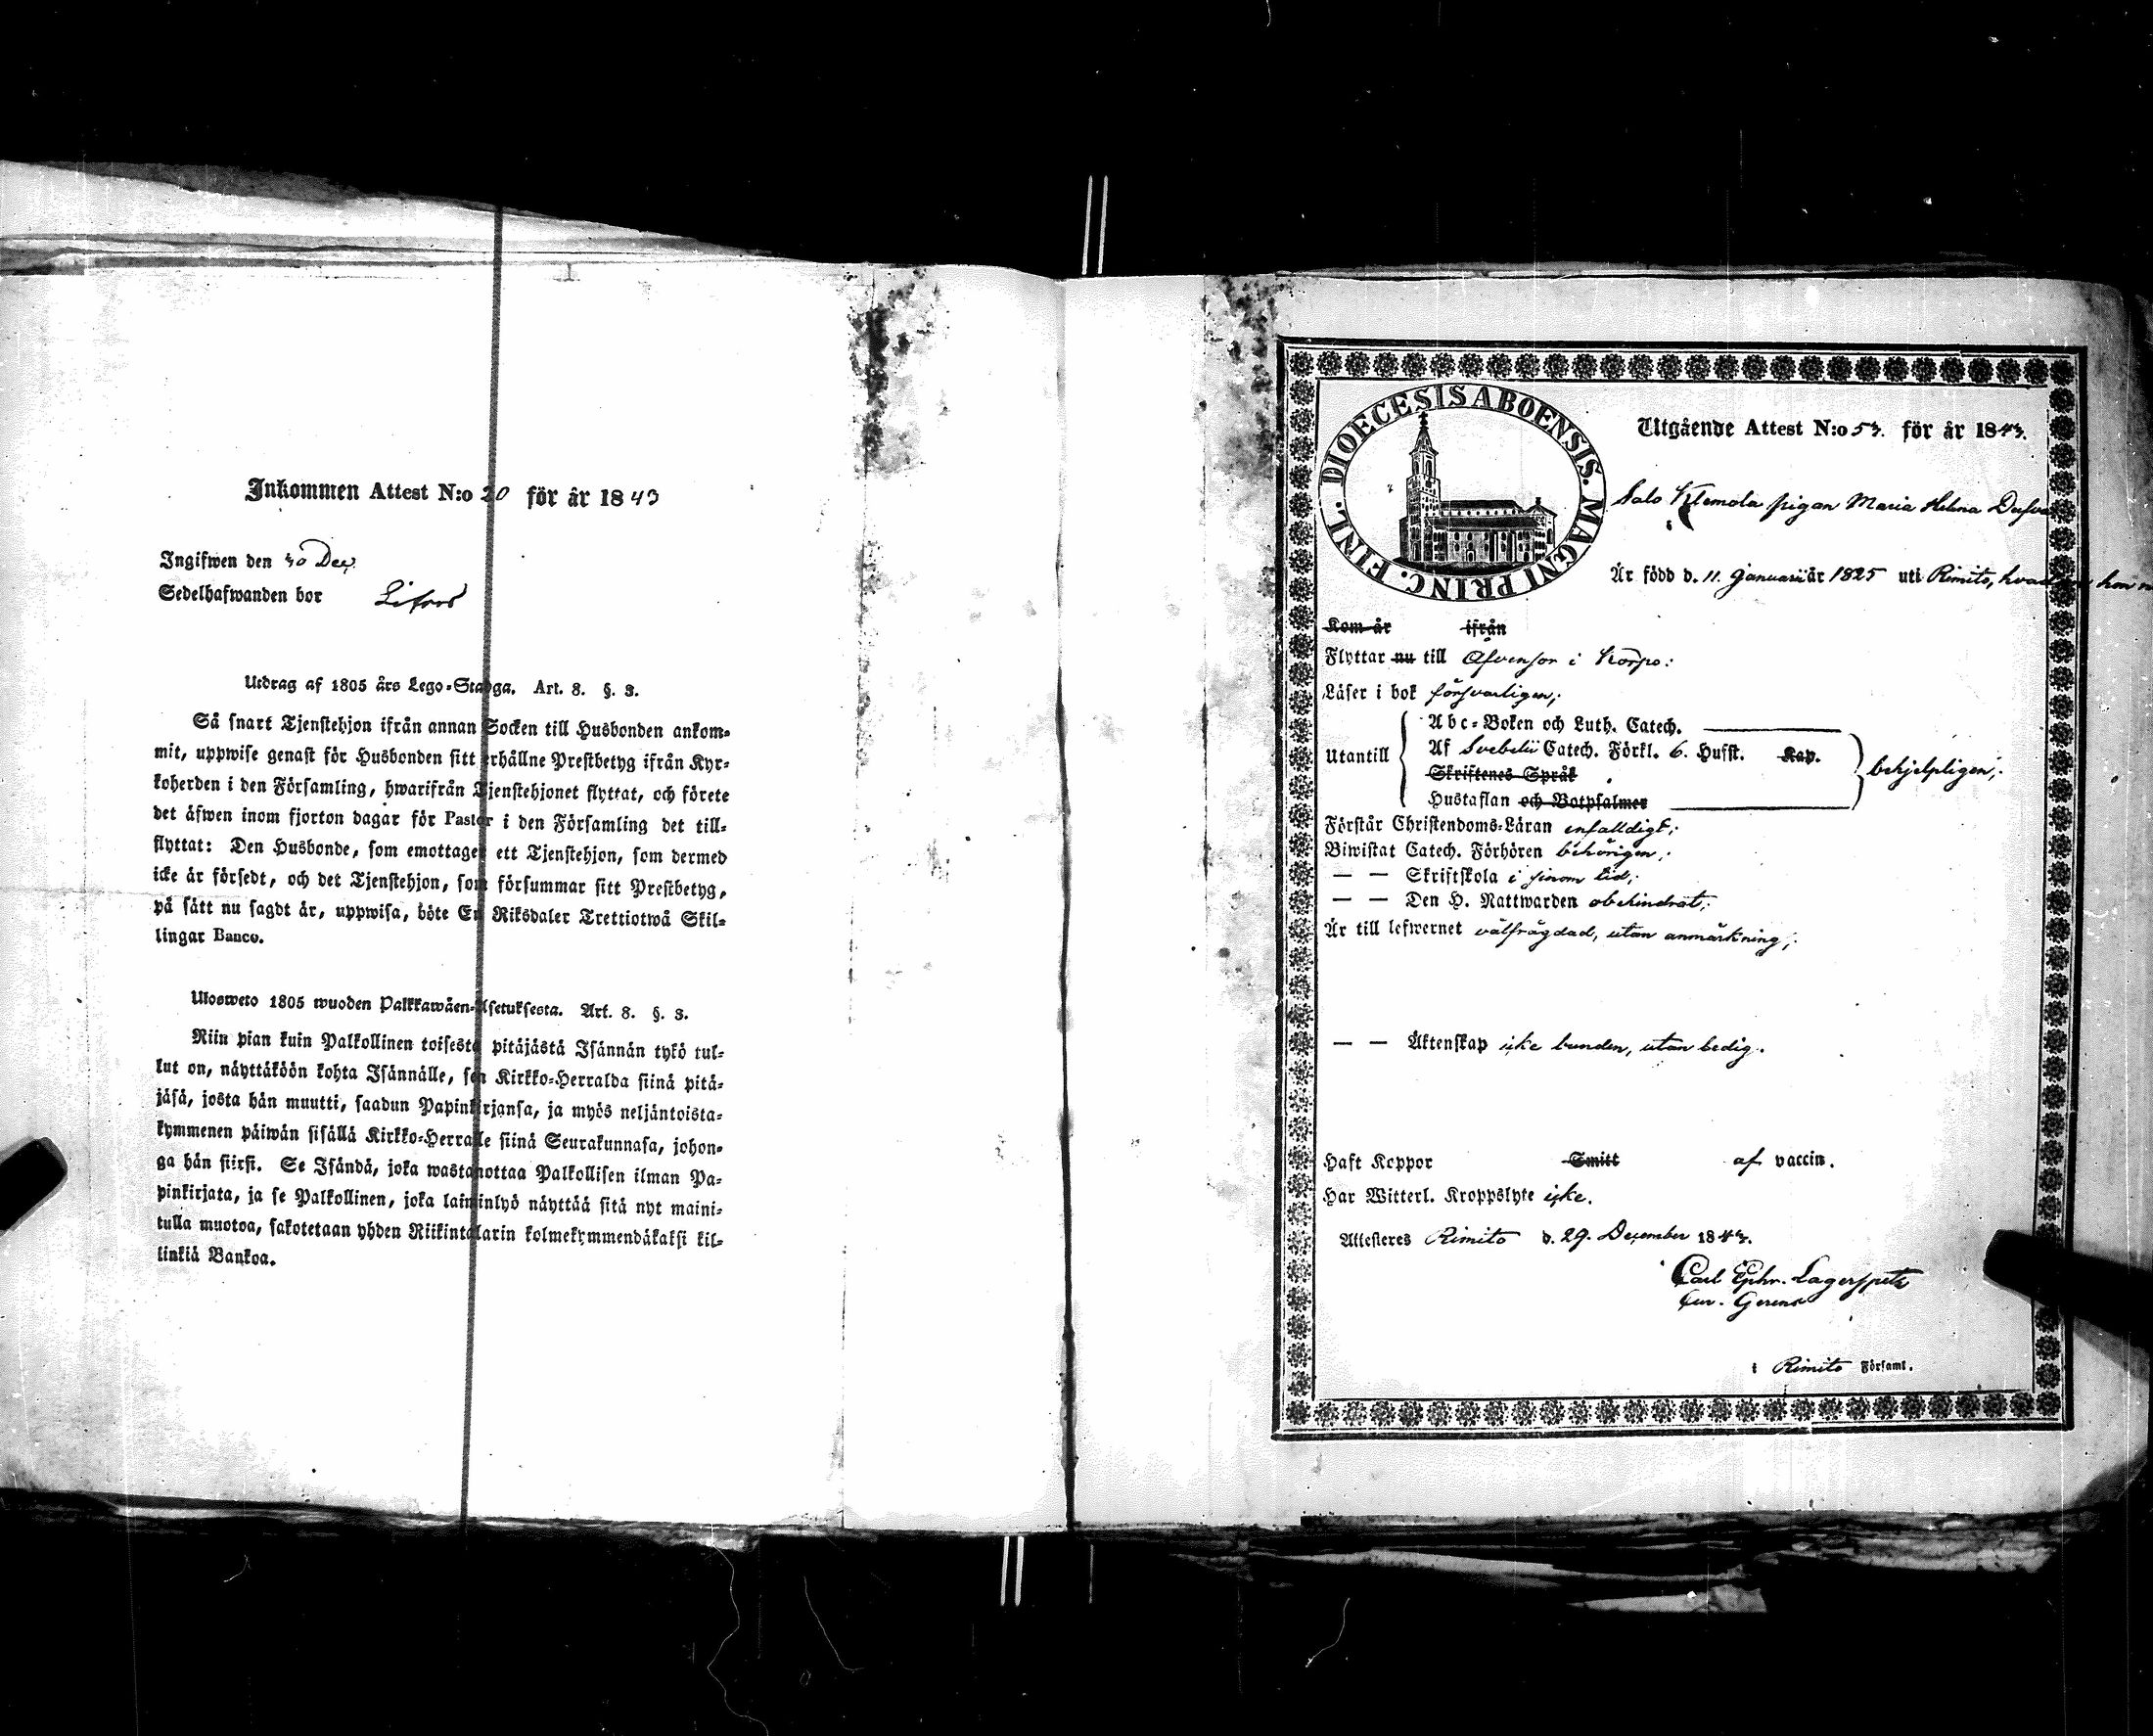 Inkommen Attest N:o 20 för år 1843
Ingifwen den 30 Dec.
Sedelhafwanden bor Lifors
Utdrag af 1805 års Lego-Stadga. Art. 8. §. 3.
Så snart Tjenstehjon ifrån annan Socken till Husbonden ankom-
mit, uppwise genast för Husbonden sitt erhållne Prestbetyg ifrån Kyr-
koherden i den Församling, hwarifrån Tjenstehjonet flyttat, och förete
det äfwen inom fjorton dagar för Pastor i den Församling det till-
flyttat: Den Husbonde, som emottager ett Tjenstehjon, som dermed
icke är försedt, och det Tjenstehjon, som försummar sitt Prestbetyg,
på sätt nu sagdt är, uppwisa, böte En Riksdaler Trettiotwå Skil-
lingar Banco.
Ulosweto 1805 wuoden Palkkawäen-Asetuksesta. Art. 8. §. 3.
Niin pian kuin Palkollinen toisesta pitäjästä Isännän tykö tul-
lut on, näyttäköön kohta Isännälle, sen Kirkko-Herralda siinä pitä-
jäsä, josta hän muutti, saadun Papinkirjansa, ja myös neljäntoista-
kymmenen päiwän sisällä Kirkko-Herralle siinä Seurakunnasa, johon-
ga hän siirsi. Se Isändä, joka wastanottaa Palkollisen ilman Pa-
pinkirjata, ja se Palkollinen, joka laiminlyö näyttää sitä nyt maini-
tulla muotoa, sakotetaan yhden Riikintalarin kolmekymmendäkaksi kil-
linkiä Bankoa.
DIOECESIS ABOENSIS. MAGNI PRINC. FINL.
Utgående Attest N:o 53. för år 1843.
Salo Klemola pigan Maria Helena Dufva
Är född d. 11. Januarii år 1825 uti Rimito, hvad hon
Kom år ifrån
Flyttar nu till Åfvensor i Korpo:
Läser i bok försvarligen;
Utantill
Abc-Boken och Luth. Catech.
Af Svebelii Catech. Förkl. 6. Hufst. Kap.
Skriftenes Språk
Hustaflan och Botpsalmer
behjelpligen;
Förstår Christendoms-Läran enfaldigt;
Biwistat Catech. Förhören behörigen;
— — Skriftskola i sinom tid;
— — Den H. Nattwarden obehindrat;
Är till lefwernet välfrägdad, utan anmärkning;
— — Äktenskap icke bunden, utan ledig.
Haft Koppor Smitt af vaccin.
Har Witterl. Kroppslyte icke.
Attesteres Rimito d. 29. December 1843.
Carl Ephr. Lagerspetz
Cur. Gerens
i Rimito Församl.